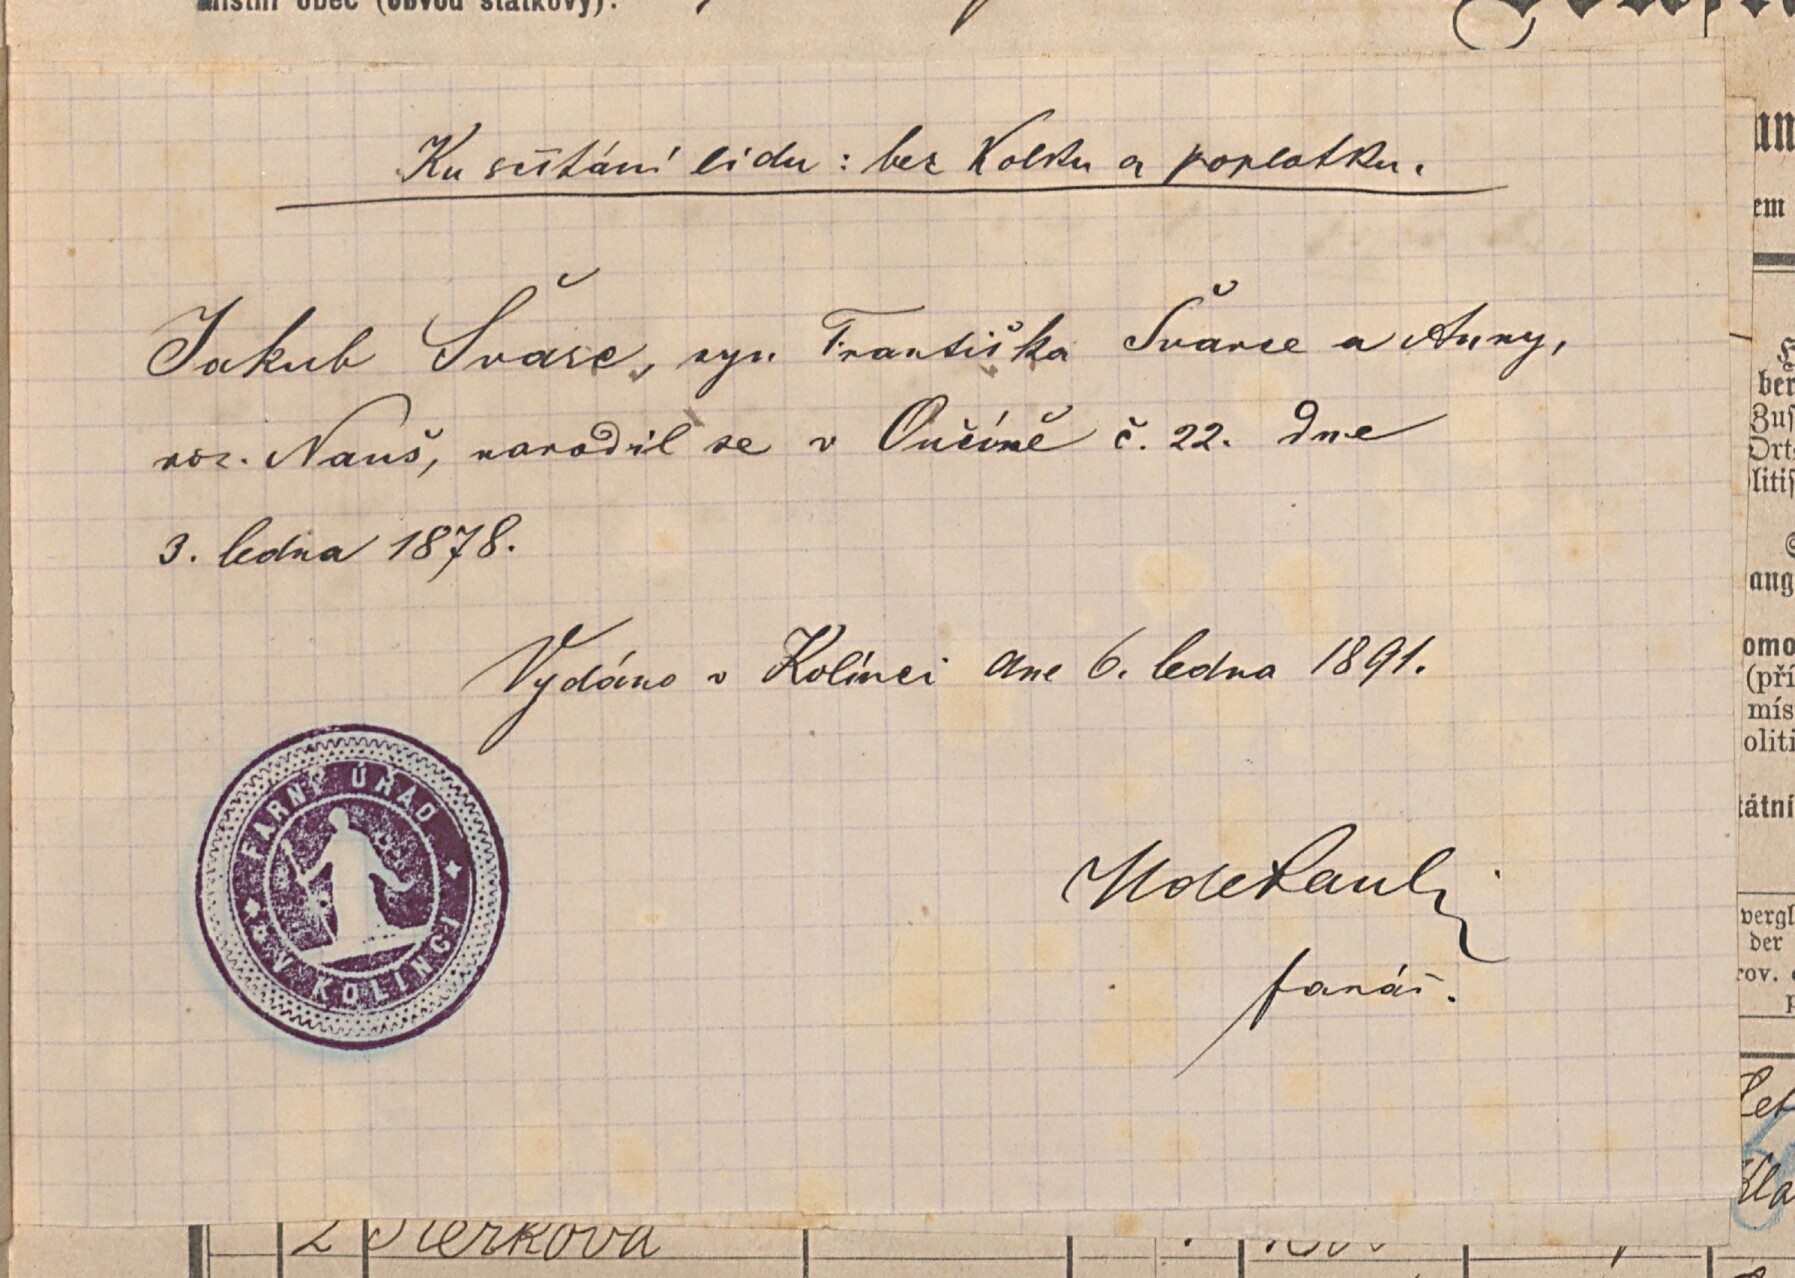 místní obec (obvod statkový):
Ku sčítání lidu : bez kolku a poplatku.
Jakub Švarc, syn Františka Švarce a Anny,
roz. Nauš, narodil se v Ončíně č. 22. dne
3. ledna 1878.
Vydáno v Kolínci dne 6. ledna 1891.
FARNÍ ÚŘAD
V KOLÍNCI
farář.
em
ber
Zus
Ort
litis
ang
omo
(pří
mís
oliti
tátní
vergl
der
rov.
2